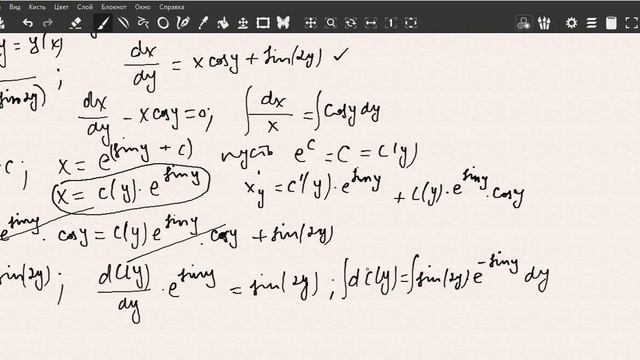 Вид Кисть Цвет Слой Блокнот Окно Справка
y = y(x)
dx/dy = x cosy + sin(2y) ✓
sin2y) ;
dx/dy - x cosy = 0; ∫ dx/x = ∫ cosy dy
c; x = e^(siny + c) пусть e^c = C = C(y)
x = c(y) · e^siny x'y = C'(y) · e^siny + C(y) · e^siny · cosy
e^siny · cosy = C(y) e^siny · cosy + sin(2y)
sin(2y) ; dC(y)/dy · e^siny = sin(2y) ; ∫ dC(y) = ∫ sin(2y) e^-siny dy